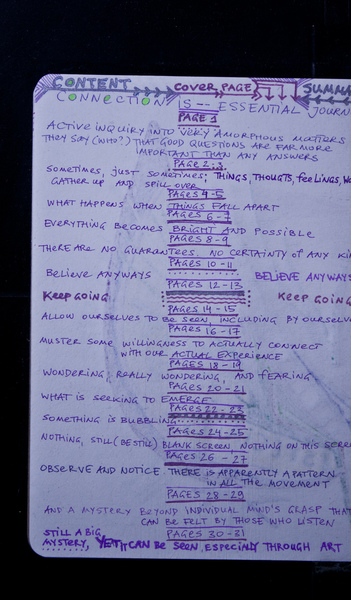 CONTENT COVER PAGE SUMMA
CONNECTION IS -- ESSENTIAL JOURN
PAGE 1
ACTIVE INQUIRY INTO VERY AMORPHOUS MATTERS
THEY SAY (WHO?) THAT GOOD QUESTIONS ARE FAR MORE
IMPORTANT THAN ANY ANSWERS
PAGE 2-3
SOMETIMES, JUST SOMETIMES, THINGS, THOUGTS, feeLINGS, WO
GATHER UP AND SPILL OVER
PAGES 4-5
WHAT HAPPENS WHEN THINGS FALL APART
PAGES 6-7
EVERYTHING BECOMES BRIGHT AND POSSIBLE
PAGES 8-9
THERE ARE NO GUARANTEES. NO CERTAINTY OF ANY KIN
PAGES 10-11
BELIEVE ANYWAYS BELIEVE ANYWAYS
PAGES 12-13
KEEP GOING KEEP GOING
PAGES 14-15
ALLOW OURSELVES TO BE SEEN, INCLUDING BY OURSELVE
PAGES 16-17
MUSTER SOME WILLINGNESS TO ACTUALLY CONNECT
WITH OUR ACTUAL EXPERIENCE
PAGES 18-19
WONDERING, REALLY WONDERING, AND FEARING
PAGES 20-21
WHAT IS SEEKING TO EMERGE
PAGES 22-23
SOMETHING IS BUBBLING
PAGES 24-25
NOTHING, STILL (BE STILL) BLANK SCREEN, NOTHING ON THIS SCREE
PAGES 26-27
OBSERVE AND NOTICE THERE IS APPARENTLY A PATTERN
IN ALL THE MOVEMENT
PAGES 28-29
AND A MYSTERY BEYOND INDIVIDUAL MIND'S GRASP THAT
CAN BE FELT BY THOSE WHO LISTEN
PAGES 30-31
STILL A BIG
MYSTERY, YET IT CAN BE SEEN, ESPECIALLY THROUGH ART